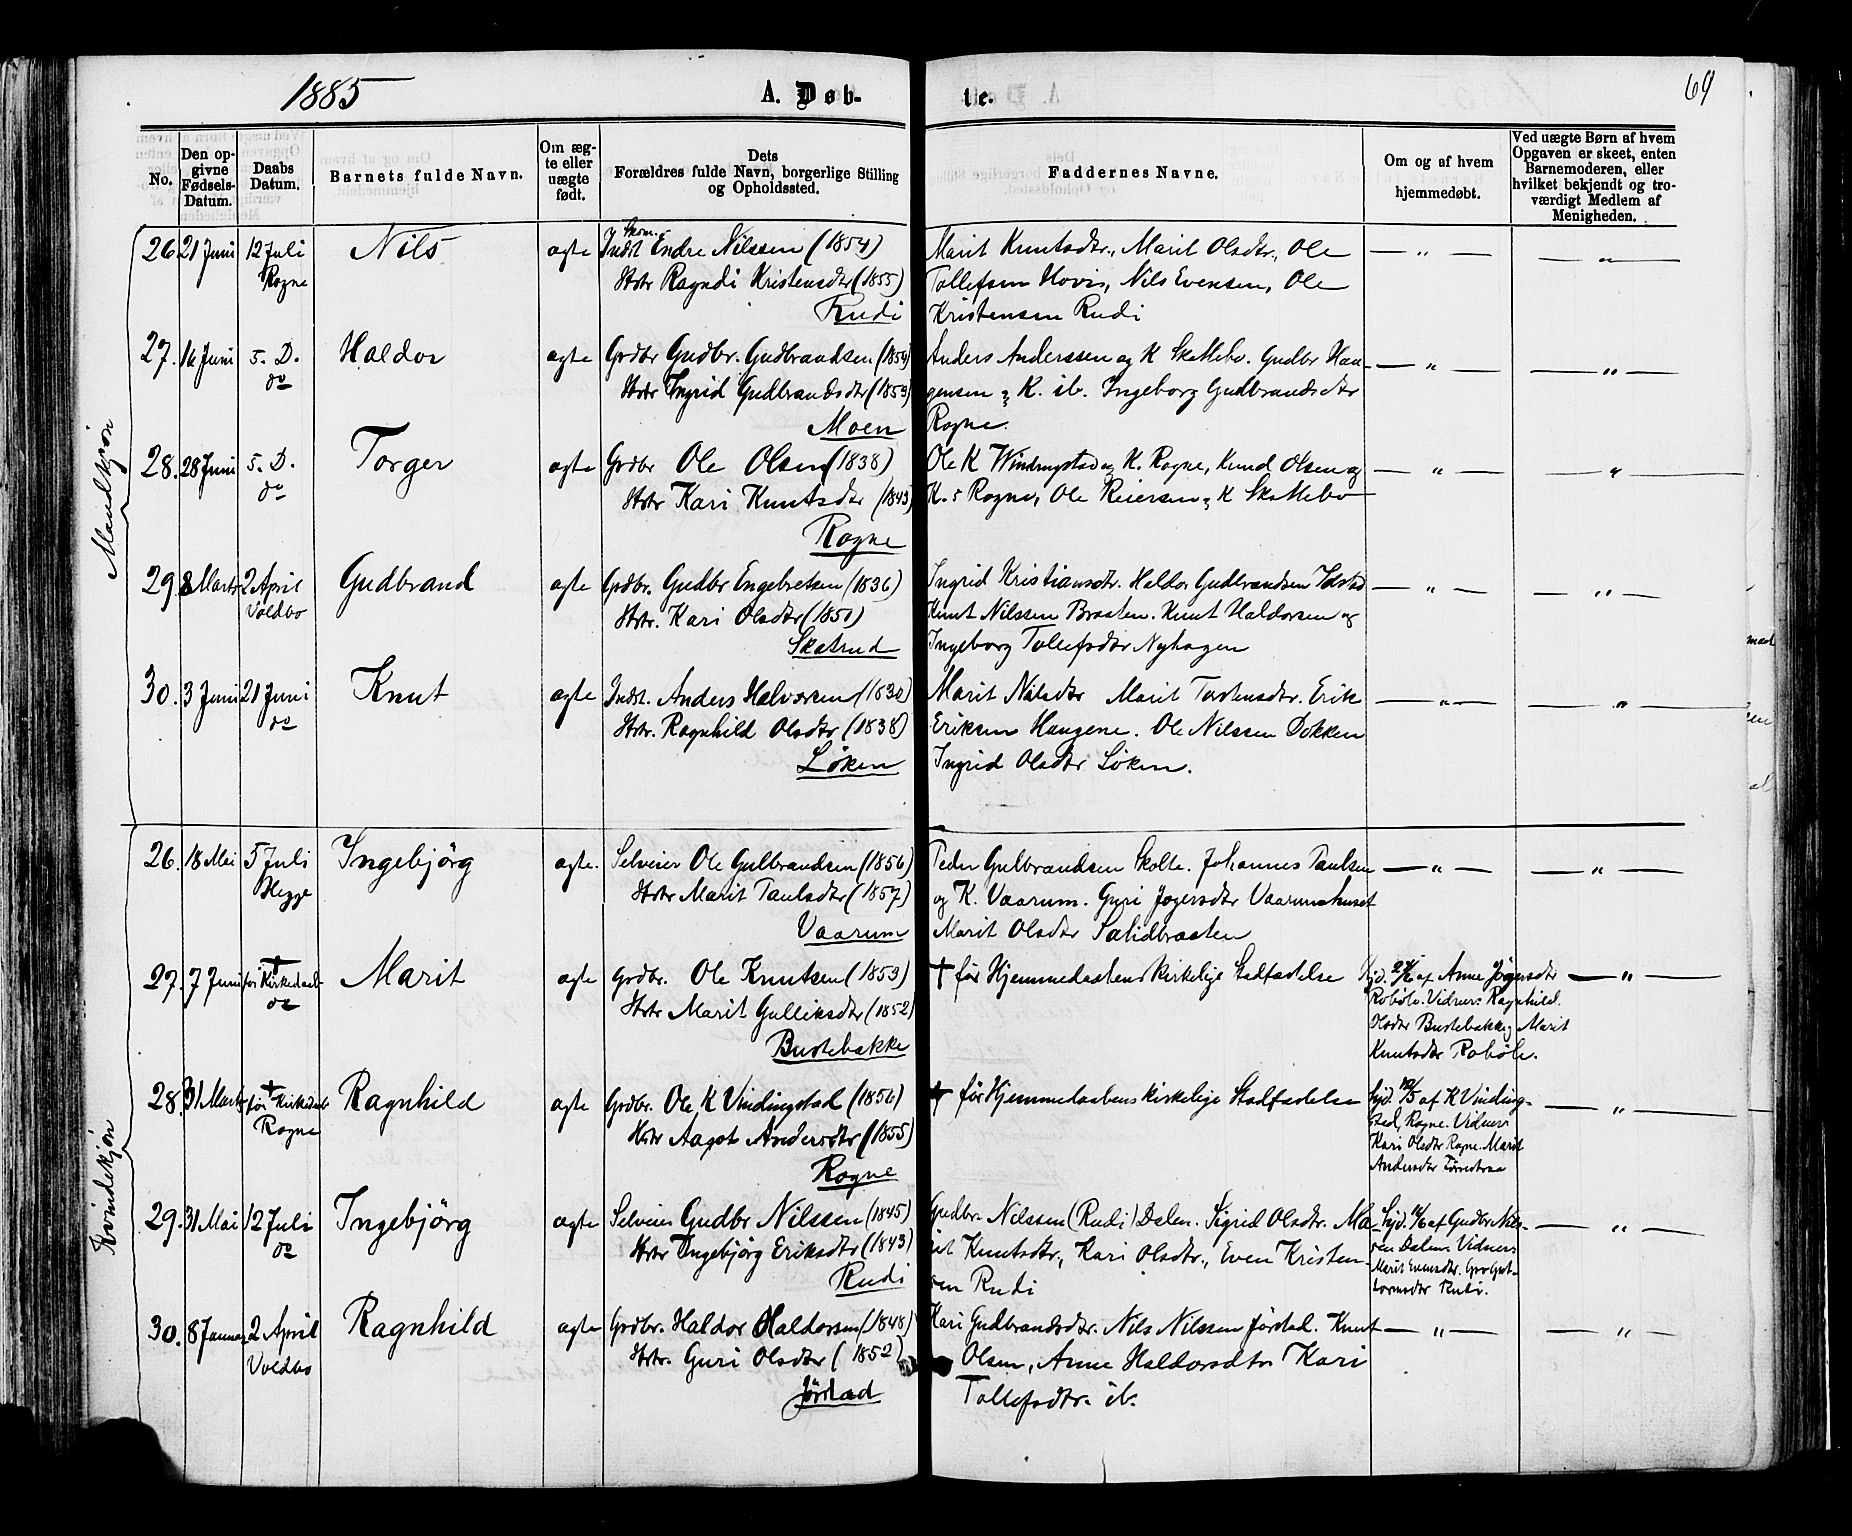 1885
A. Døb-
te.
69
No.
Den op-
givne
Fødsels-
Datum.
Daabs
Datum.
Barnets fulde Navn.
Om æg-
te eller
uægte
født.
Dets
Forældres fulde Navn, borgerlige Stilling
og Opholdssted.
Faddernes Navne.
Om og af hvem
hjemmedøbt.
Ved uægte Børn af hvem
Opgaven er skeet, enten
Barnemoderen, eller
hvilket bekjendt og tro-
værdigt Medlem af
Menigheden.
Mandkjøn
26. 21 Juni 12 Juli Nils ægte Indst Endre Nilssen (1854) Marit Knutsdtr., Marit Olsdtr., Ole — „ — — „ —
Rogne Hstr Ragndi Kristensdtr (1855) Tollefsen Hovi, Nils Evensen, Ole
Rudi Kristensen Rudi
27. 14 Juni s. D. Haldor ægte Grdbr Gudbr. Gudbrandsen (1854) Anders Anderssen og K Skattebo. Gudbr Hau- — „ — — „ —
do Hstr Ingrid Gudbrandsdtr (1853) gensen og K. ib. Ingeborg Gudbrandsdtr
Moen Rogne.
28. 28 Juni s. D. Torger ægte Grdbr Ole Olsen (1838) Ole K Windingstad og K. Rogne, Knud Olsen og — „ — — „ —
do Hstr Kari Knutsdtr (1843) K. s Rogne, Ole Reiersen og K Skattebo
Rogne
29. 8 Marts 2 April Gudbrand ægte Grdbr. Gudbr Engebretsen (1836) Ingrid Kristiansdtr. Haldor Gudbrandsen — „ — — „ —
Voldbo Hstr. Kari Olsdtr (1850) Knut Nilssen Braaten. Knut Haldorsen og
Skatrud Ingeborg Tollefsdtr Nyhagen
30. 3 Juni 21 Juni Knut ægte Indst. Anders Halvorsen (1830) Marit Nilsdtr Marit Torstensdtr. Erik — „ — — „ —
do Hstr. Ragnhild Olsdtr (1838) Eriksen Haugene. Ole Nilssen Dokken
Løken Ingrid Olsdtr Løken.
Kvindekjøn
26. 18 Mai 5 Juli Ingebjørg ægte. Selveier Ole Gulbrandsen (1856) Peder Gulbrandsen Skolte. Johannes Paulsen — „ — — „ —
Hegge Hstr Marit Paulsdtr (1857) og K. Vaarum. Guri Jøgersdtr Vaarumshuset
Vaarum Marit Olsdtr Sælidbraaten
27. 7 Juni † før Kirkedaab Marit ægte Grdbr. Ole Knutsen (1853) † før Hjemmedaabens kirkelige Stadfæstelse Hjd. af Anne Jøgersdtr — „ —
do Hstr Marit Gulliksdtr (1852) Robøle. Vidner: Ragnhild
Burtebakke Olsdtr Burtebakke og Marit
Knutsdtr Robøle.
28. 31 Marts † før Kirkedaab Ragnhild ægte Grdbr. Ole K Vindingstad (1856) † før Hjemmedaabens kirkelige Stadfæstelse Hjd. af K Vinding- — „ —
Rogne Hstr Aagot Andersdtr (1855) stad, Rogne. Vidner:
Rogne Kari Olsdtr Rogne. Marit
Andersdtr
29. 31 Mai 12 Juli Ingebjørg ægte Selveier Gudbr Nilssen (1845) Gudbr. Nilssen (Rudi) Dalen. Sigrid Olsdtr. Ma- Hjd. af Gudbr Nils- — „ —
do Hstr Ingebjørg Eriksdtr (1843) rit Knutsdtr., Kari Olsdtr., Even Kristen- sen Dalen. Vidner:
Rudi sen Rudi Marit Evensdtr. Gro Gut-
tormsdtr Rudi.
30. 8 Januar 2 April Ragnhild ægte Grdbr. Haldor Haldorsen (1848) Kari Gudbrandsdtr. Nils Nilssen Jørstad. Knut — „ — — „ —
Voldbo Hstr. Guri Olsdtr (1852) Olsen, Anne Haldorsdtr Kari
Jørstad Tollefsdtr. ib.